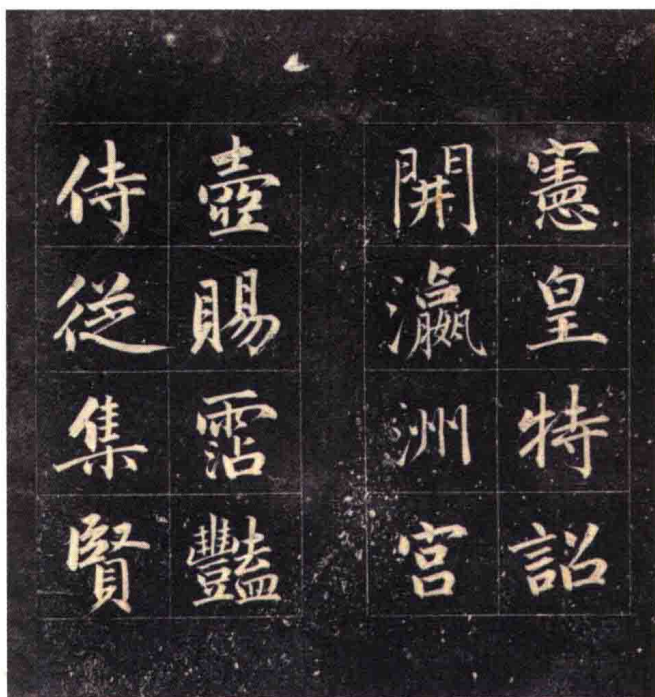 憲皇特詔
開瀛洲宮
壺賜霑豔
侍從集賢